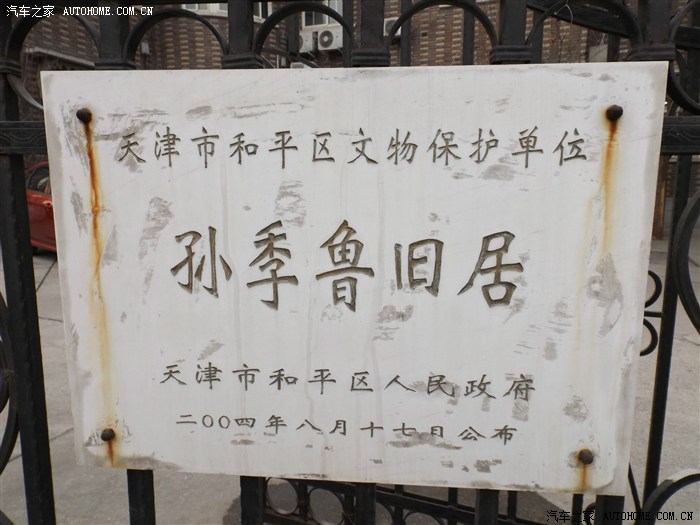 汽车之家 AUTOHOME.COM.CN
天津市和平区文物保护单位
孙季鲁旧居
天津市和平区人民政府
二〇〇四年八月十七日公布
汽车之家 AUTOHOME.COM.CN